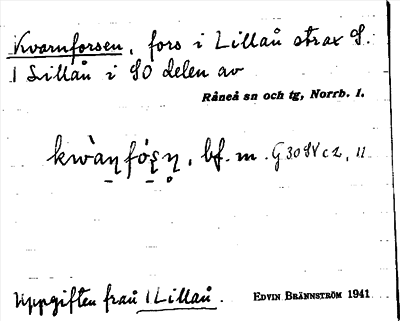 Kvarnforsen, fors i Lillån strax S.
1 Lillån i SO delen av
Råneå sn och tg, Norrb. l.
kwàṇfó̤ṣṇ̥, bf. m. G30SVc2, 11
Uppgiften från 1 Lillån.
EDVIN BRÄNNSTRÖM 1941